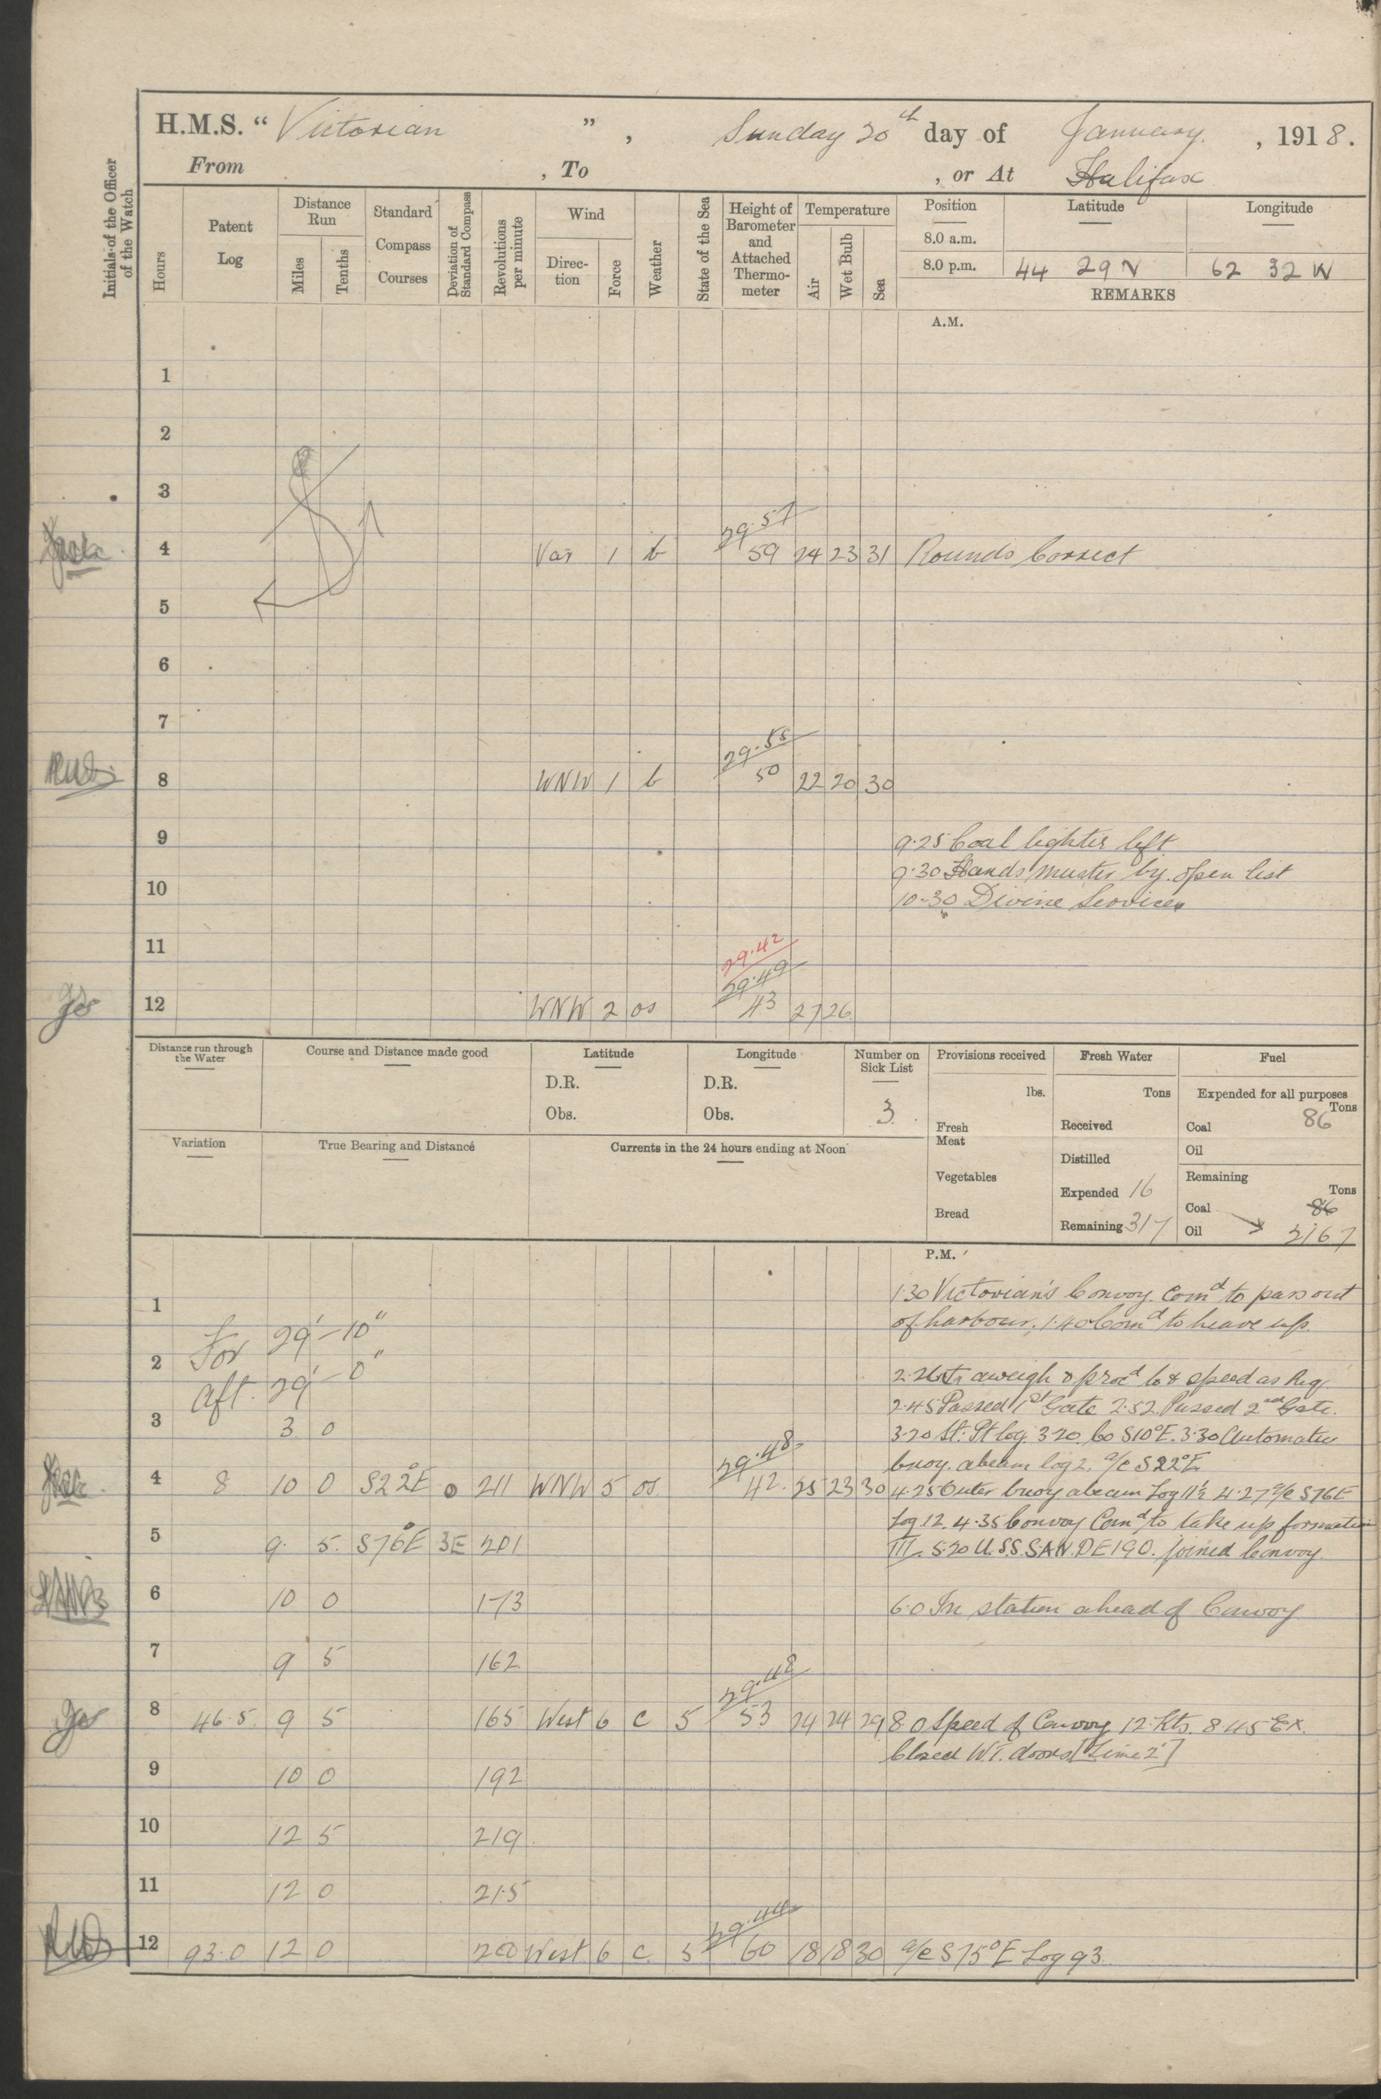 H.M.S. " Victorian ", Sunday 20th day of January, 1918.
From , To , or At Halifax
Initials of the Officer of the Watch
Hours
Patent Log
Distance Run
Miles
Tenths
Standard Compass Courses
Deviation of Standard Compass
Revolutions per minute
Wind
Direc-tion
Force
Weather
State of the Sea
Height of Barometer and Attached Thermo-meter
Temperature
Air
Wet Bulb
Sea
Position Latitude Longitude
8.0 a.m.
8.0 p.m. 44 29 N 62 32 W
REMARKS
A.M.
1
2
3
29.57
4 Var 1 b 59 24 23 31 Rounds Correct
5
6
7
29.55
8 WNW 1 b 50 22 20 30
9 9.25 Coal lighter left
9.30 Hands muster by open list
10 10.30 Divine Service
11
29.42
29.49
12 WNW 2 os 43 27 26
Distance run through the Water
Course and Distance made good
Latitude
D.R.
Obs.
Longitude
D.R.
Obs.
Number on Sick List
3
Provisions received
lbs.
Fresh Meat
Vegetables
Bread
Fresh Water
Tons
Received
Distilled
Expended 16
Remaining 317
Fuel
Expended for all purposes
Tons
Coal 86
Oil
Remaining
Tons
Coal 86
Oil 2167
Variation
True Bearing and Distance
Currents in the 24 hours ending at Noon
P.M.
1 1.30 Victorian's Convoy. Comd to pass out
of harbour. 1.40 Comd to heave up.
For 29'-10"
2 2.26 aweigh & procd Co & speed as Req.
Aft. 29'-0"
2.45 Passed 1st Gate 2.52 Passed 2nd Gate.
3 3 0 3.20 St. Pt log. 3.20. Co S10°E. 3.30 Automatic
29.48
buoy. abeam log 2. a/c S22°E
4 8 10 0 S22°E 0 211 WNW 5 os 42 25 23 30 4.25 Outer buoy abeam Log 11½ 4.27 a/c S76E
Log 12. 4.35 Convoy Comd to take up formation
5 9 5 S76°E 3E 201 III. 5.20 U.S.S. SAN DEIGO. joined Convoy.
6 10 0 173 6.0 In station ahead of Convoy
7 9 5 162
29.48
8 46.5 9 5 165 West 6 c 5 53 24 24 29 8.0 Speed of Convoy 12 Kts. 8.45 Ex.
Closed W.T. doors [Time 2']
9 10 0 192
10 12 5 219
11 12 0 215
29.44
12 93.0 12 0 200 West 6 c 5 60 18 18 30 a/c S75°E Log 93.